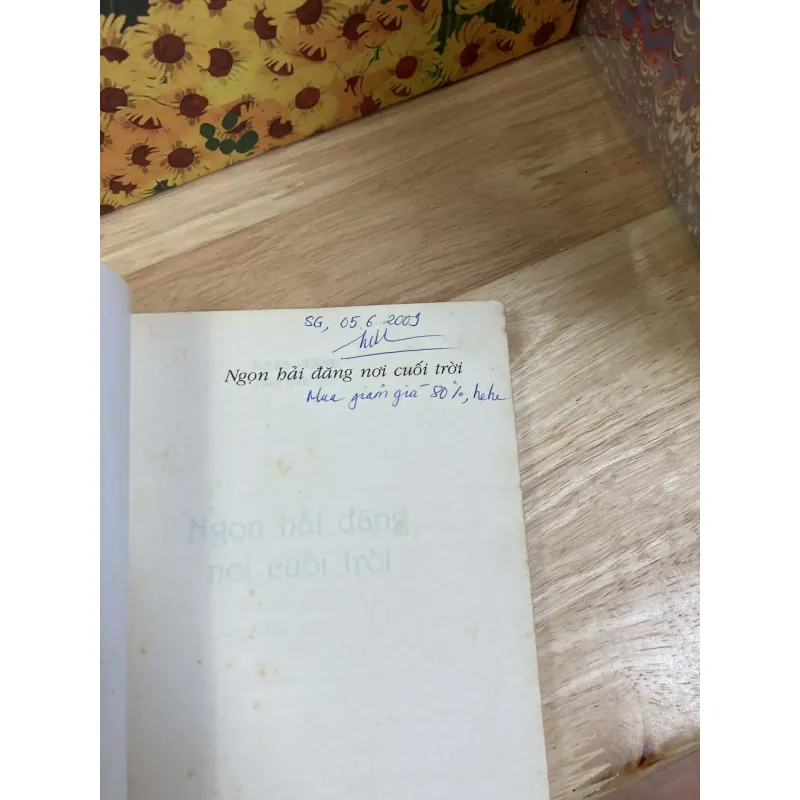 SG, 05.6.2009
Ngọn hải đăng nơi cuối trời
Mua giảm giá 80%, hehe
Ngọn hải đăng
nơi cuối trời